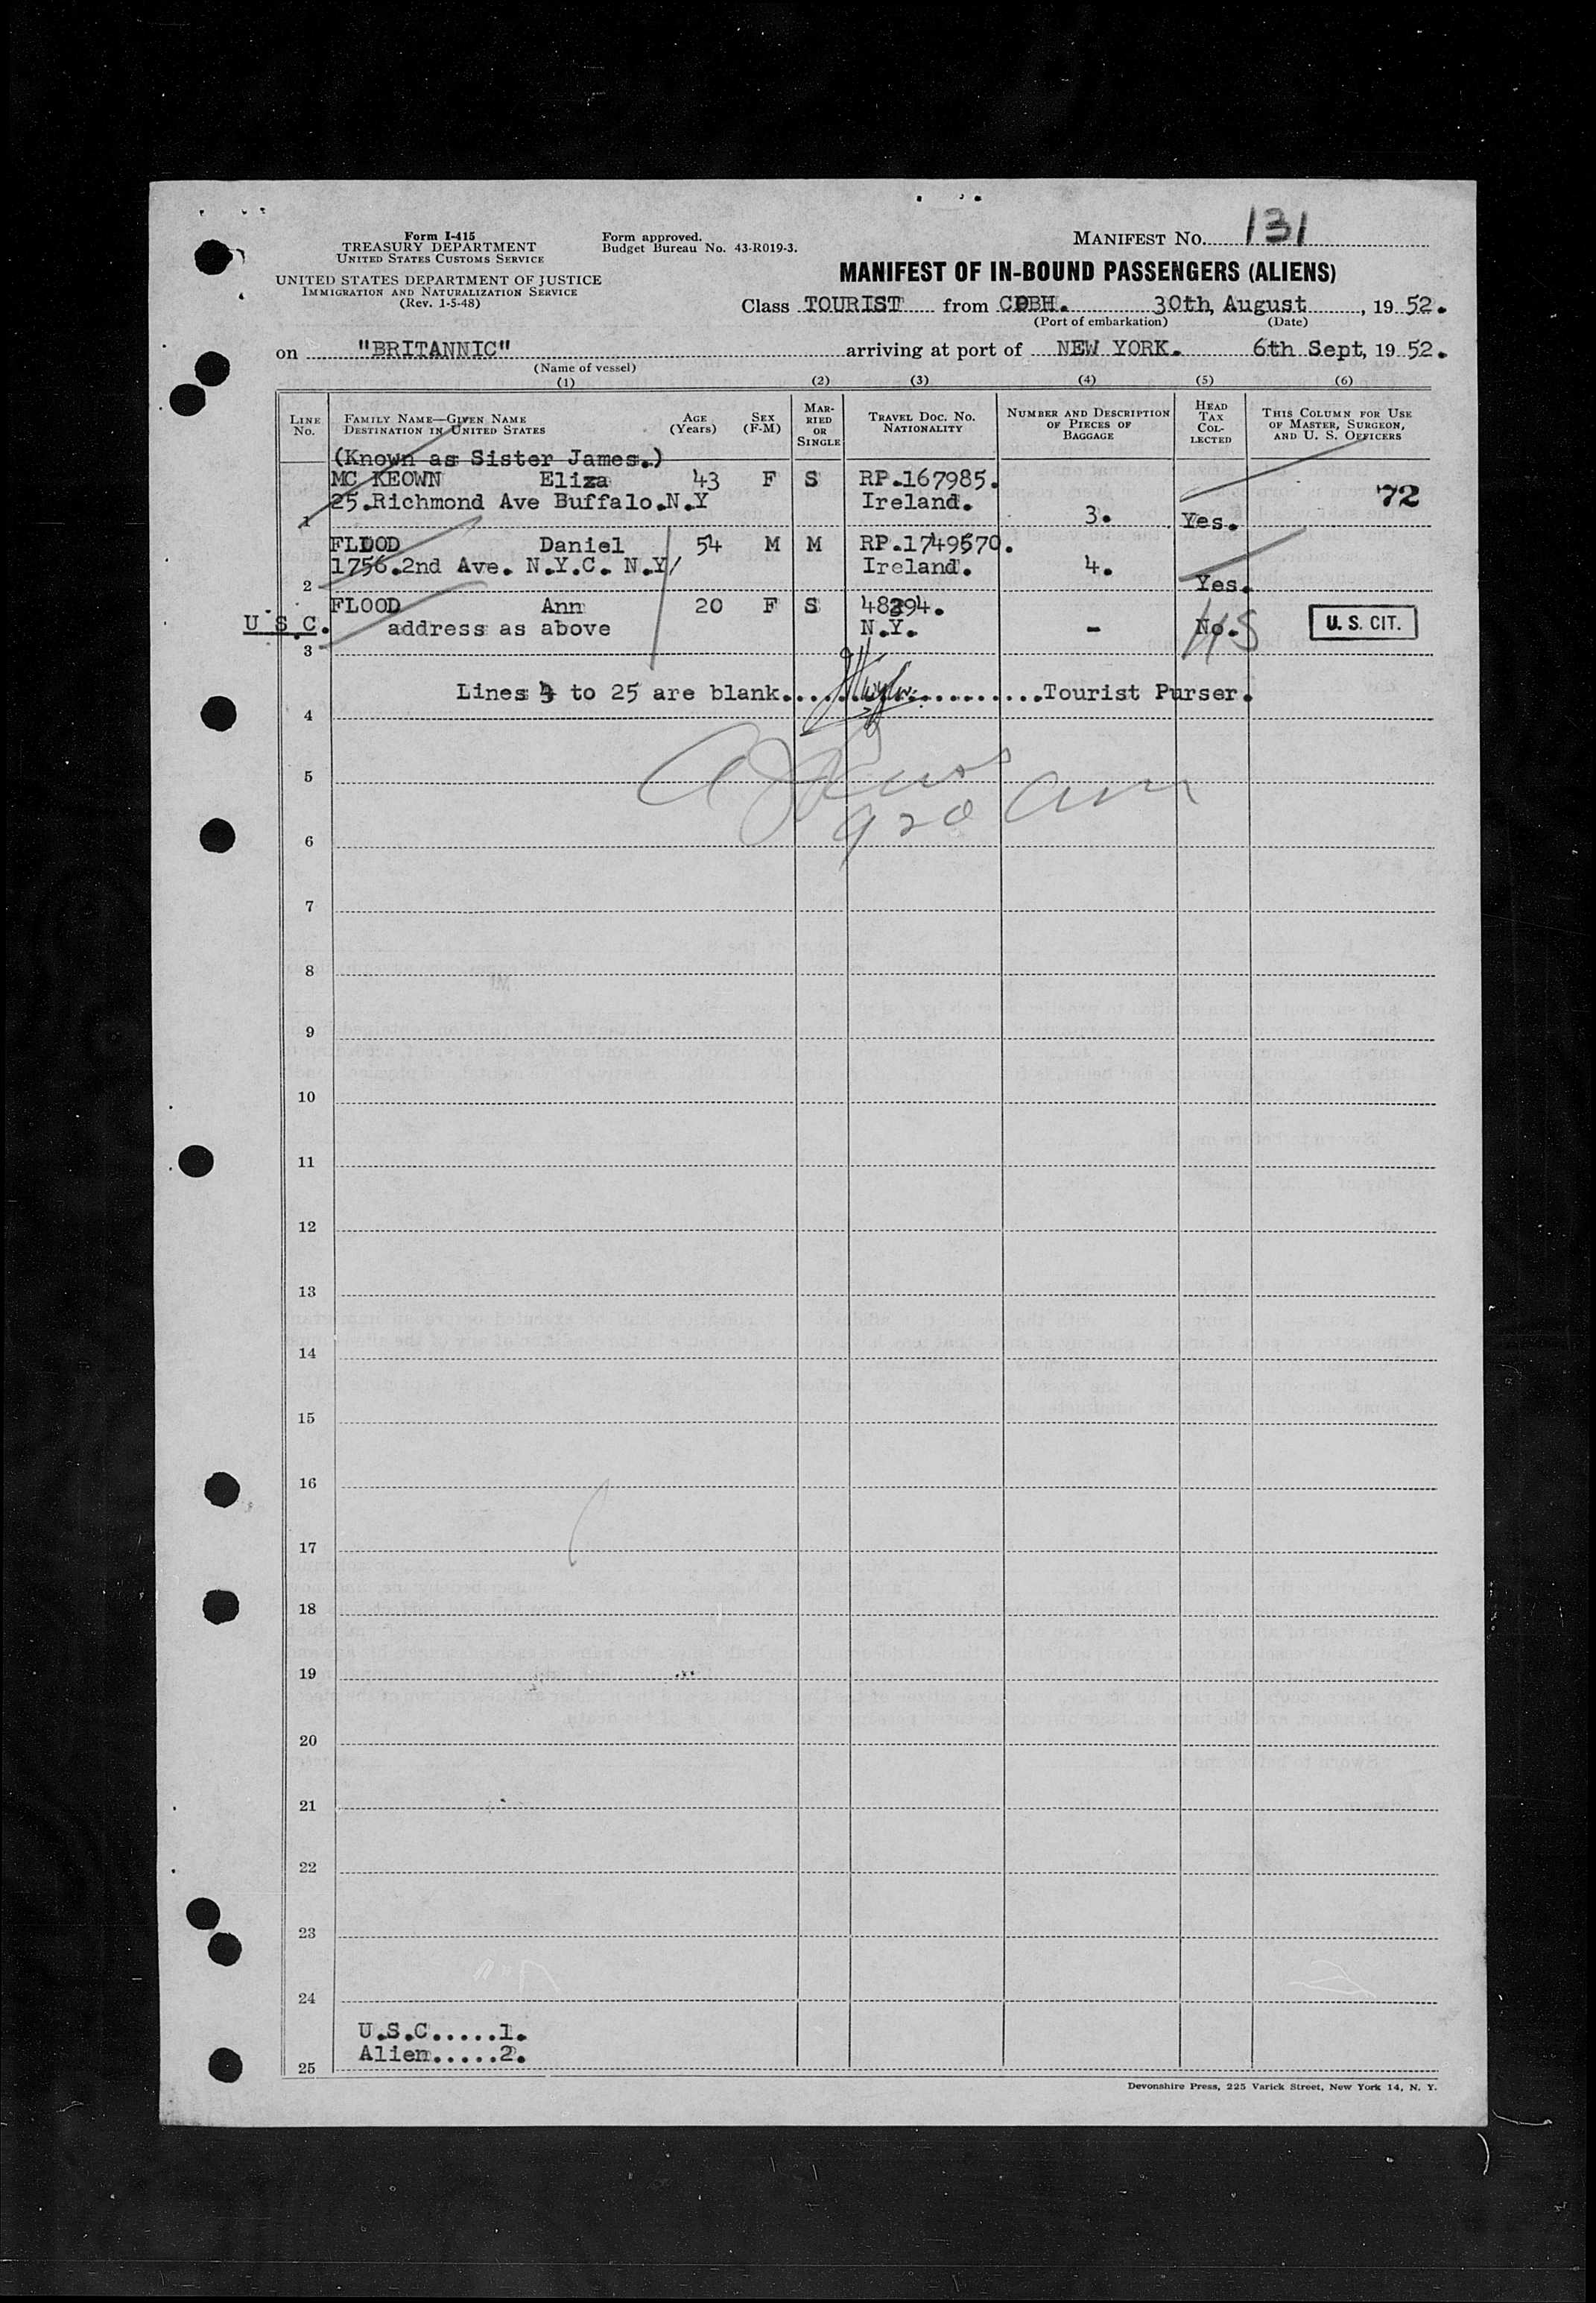 Form I-415
TREASURY DEPARTMENT
UNITED STATES CUSTOMS SERVICE
UNITED STATES DEPARTMENT OF JUSTICE
IMMIGRATION AND NATURALIZATION SERVICE
(Rev. 1-5-48)
Form approved.
Budget Bureau No. 43-R019-3.
MANIFEST NO. 131
MANIFEST OF IN-BOUND PASSENGERS (ALIENS)
Class TOURIST from COBH. 30th, August, 19 52.
(Port of embarkation) (Date)
on "BRITANNIC" arriving at port of NEW YORK. 6th Sept, 19 52.
(Name of vessel)
(1) (2) (3) (4) (5) (6)
LINE NO. FAMILY NAME—GIVEN NAME DESTINATION IN UNITED STATES AGE (Years) SEX (F-M) MARRIED OR SINGLE TRAVEL DOC. NO. NATIONALITY NUMBER AND DESCRIPTION OF PIECES OF BAGGAGE HEAD TAX COLLECTED THIS COLUMN FOR USE OF MASTER, SURGEON, AND U. S. OFFICERS
(Known as Sister James.)
MC KEOWN Eliza 43 F S RP.167985. 72
25.Richmond Ave Buffalo.N.Y Ireland.
1 3. Yes.
FLOOD Daniel 54 M M RP.1749570.
1756.2nd Ave. N.Y.C. N.Y/ Ireland. 4.
2 Yes.
FLOOD Ann 20 F S 48294.
U.S.C. address as above N.Y. - No. U. S. CIT.
3
Lines 4 to 25 are blank. Tourist Purser.
4
5
920 am
6
7
8
9
10
11
12
13
14
15
16
17
18
19
20
21
22
23
24
U.S.C.....1.
Alien.....2.
25
Devonshire Press, 225 Varick Street, New York 14, N. Y.